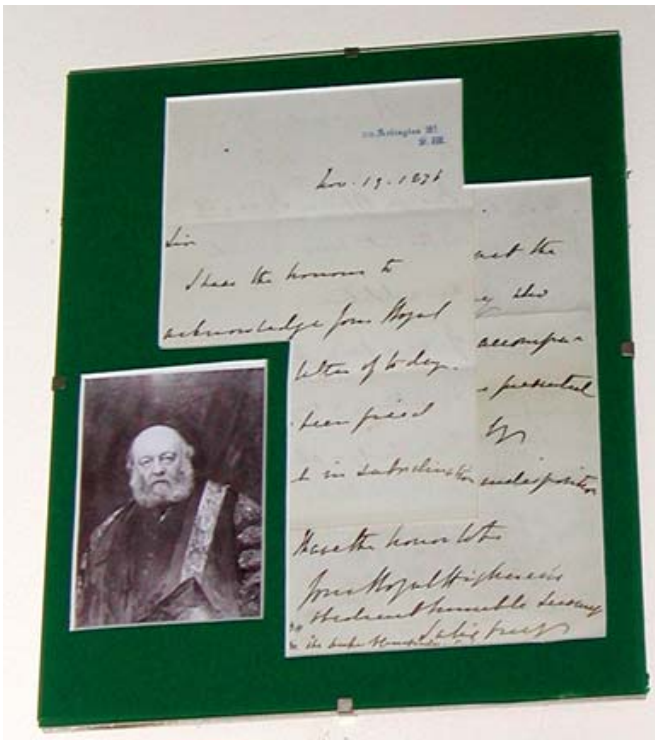 20, Arlington St.
S.W.
Nov. 19. 1876
Sir
I have the honour to
acknowledge your Royal
letter of to day.
been forced
in subordination
not the
accompa-
presented
by
indisposition
Have the honor to be
Your Royal Highness's
obedient humble servant
Salisbury